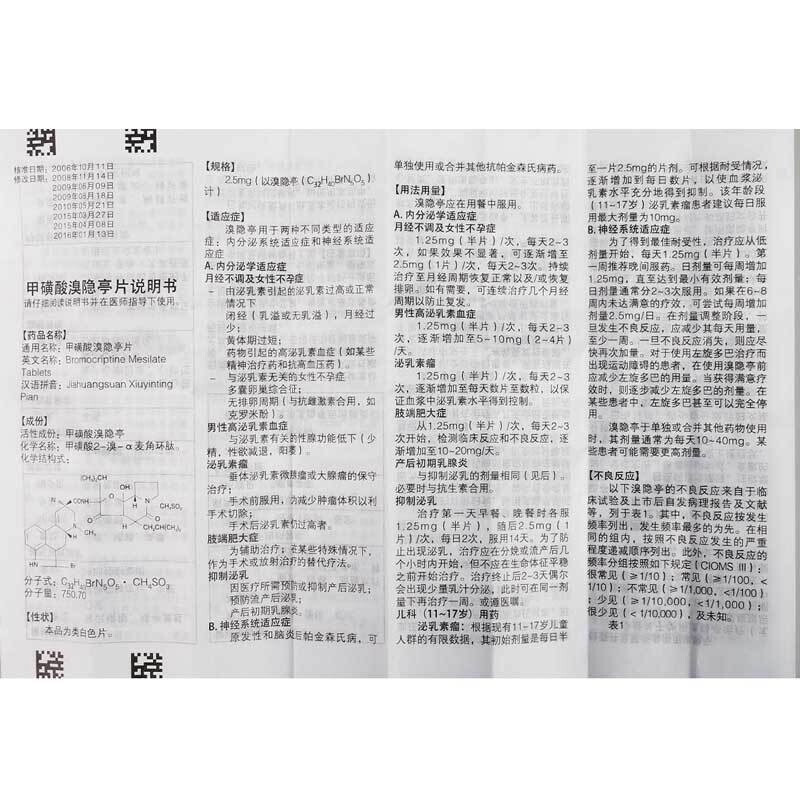 核准日期：2006年10月11日
修改日期：2008年11月14日
2009年06月09日
2009年08月18日
2010年05月21日
2015年03月27日
2015年04月08日
2016年01月13日
甲磺酸溴隐亭片说明书
请仔细阅读说明书并在医师指导下使用。
【药品名称】
通用名称：甲磺酸溴隐亭片
英文名称：Bromocriptine Mesilate
Tablets
汉语拼音：Jiahuangsuan Xiuyinting
Pian
【成份】
活性成份：甲磺酸溴隐亭
化学名称：甲磺酸2-溴-α麦角环肽。
化学结构式：
分子式：C32H40BrN5O5・CH4SO3
分子量：750.70
【性状】
本品为类白色片。
【规格】
2.5mg（以溴隐亭（C32H40BrN5O5）
计）
【适应症】
溴隐亭用于两种不同类型的适应
症：内分泌系统适应症和神经系统适
应症
A. 内分泌学适应症
月经不调及女性不孕症
- 由泌乳素引起的泌乳素过高或正常
情况下
闭经（乳溢或无乳溢），月经过
少；
黄体期过短；
药物引起的高泌乳素血症（如某些
精神治疗药和抗高血压药）
- 与泌乳素无关的女性不孕症
多囊卵巢综合征；
无排卵周期（与抗雌激素合用，如
克罗米酚）。
男性高泌乳素血症
与泌乳素有关的性腺功能低下（少
精，性欲减退，阳萎）。
泌乳素瘤
垂体泌乳素微腺瘤或大腺瘤的保守
治疗；
手术前服用，为减少肿瘤体积以利
手术切除；
手术后泌乳素仍过高者。
肢端肥大症
为辅助治疗；在某些特殊情况下，
作为手术或放射治疗的替代疗法。
抑制泌乳
因医疗所需预防或抑制产后泌乳；
预防流产后泌乳；
产后初期乳腺炎。
B. 神经系统适应症
原发性和脑炎后帕金森氏病，可
单独使用或合并其他抗帕金森氏病药。
【用法用量】
溴隐亭应在用餐中服用。
A. 内分泌学适应症
月经不调及女性不孕症
1.25mg（半片）/次，每天2~3
次，如果效果不显著，可逐渐增至
2.5mg（1片）/次，每天2~3次。持续
治疗至月经周期恢复正常以及/或恢复
排卵。如有需要，可连续治疗几个月经
周期以防止复发。
男性高泌乳素血症
1.25mg（半片）/次，每天2~3
次，逐渐增加至5~10mg（2~4片）
/天。
泌乳素瘤
1.25mg（半片）/次，每天2~3
次，逐渐增加至每天数片至数粒，以保
证血浆中泌乳素水平得到控制。
肢端肥大症
从1.25mg（半片）/次，每天2~3
次开始，检测临床反应和不良反应，逐
渐增加至10~20mg/天。
产后初期乳腺炎
与抑制泌乳的剂量相同（见后）。
必要时与抗生素合用。
抑制泌乳
治疗第一天早餐、晚餐时各服
1.25mg（半片），随后2.5mg（1片
）/次，每日2次，服用14天。为了防
止出现泌乳，治疗应在分娩或流产后几
个小时内开始，但不应在生命体征平稳
之前开始治疗。治疗终止后2~3天偶尔
会出现少量乳汁分泌，此时可在同一剂
量下再治疗一周。或遵医嘱。
儿科（11~17岁）用药
泌乳素瘤：根据现有11~17岁儿童
人群的有限数据，其初始剂量是每日半
至一片2.5mg的片剂。可根据耐受情况，
逐渐增加到每日数片，以使血浆泌
乳素水平充分地得到抑制。该年龄段
（11~17岁）泌乳素瘤患者建议每日服
用最大剂量为10mg。
B. 神经系统适应症
为了得到最佳耐受性，治疗应从低
剂量开始，每天1.25mg（半片）。第
一周推荐晚间服药。日剂量可每周增加
1.25mg，直至达到最小有效剂量；每
日剂量通常分2~3次服用。如果在6~8
周内未达满意的疗效，可尝试每周增加
剂量2.5mg/日。在剂量调整阶段，一
旦发生不良反应，应减少其每天用量，
至少一周。一旦不良反应消失，则应尽
快再次加量。对于使用左旋多巴治疗而
出现运动障碍的患者，在使用溴隐亭前
应减少左旋多巴的用量。当获得满意疗
效时，则逐步减少左旋多巴的剂量。在
某些患者中，左旋多巴甚至可以完全停
用。
溴隐亭单独或合并其他药物使用
时，其剂量通常为每天10~40mg。某
些患者可能需要更高剂量。
【不良反应】
以下溴隐亭的不良反应来自于临
床试验及上市后自发病理报告及文献
等，列于表1。其中，不良反应按发生
频率列出，发生频率最多的为先。在相
同的组内，按照不良反应发生的严重
程度递减顺序列出。此外，不良反应的
频率分组按照如下规定（CIOMS III）：
很常见（≥1/10）；常见（≥1/100，<
1/10）；不常见（≥1/1,000，<1/100）
；少见（≥1/10,000，<1/1,000）；
很少见（<1/10,000），及未知。
表1